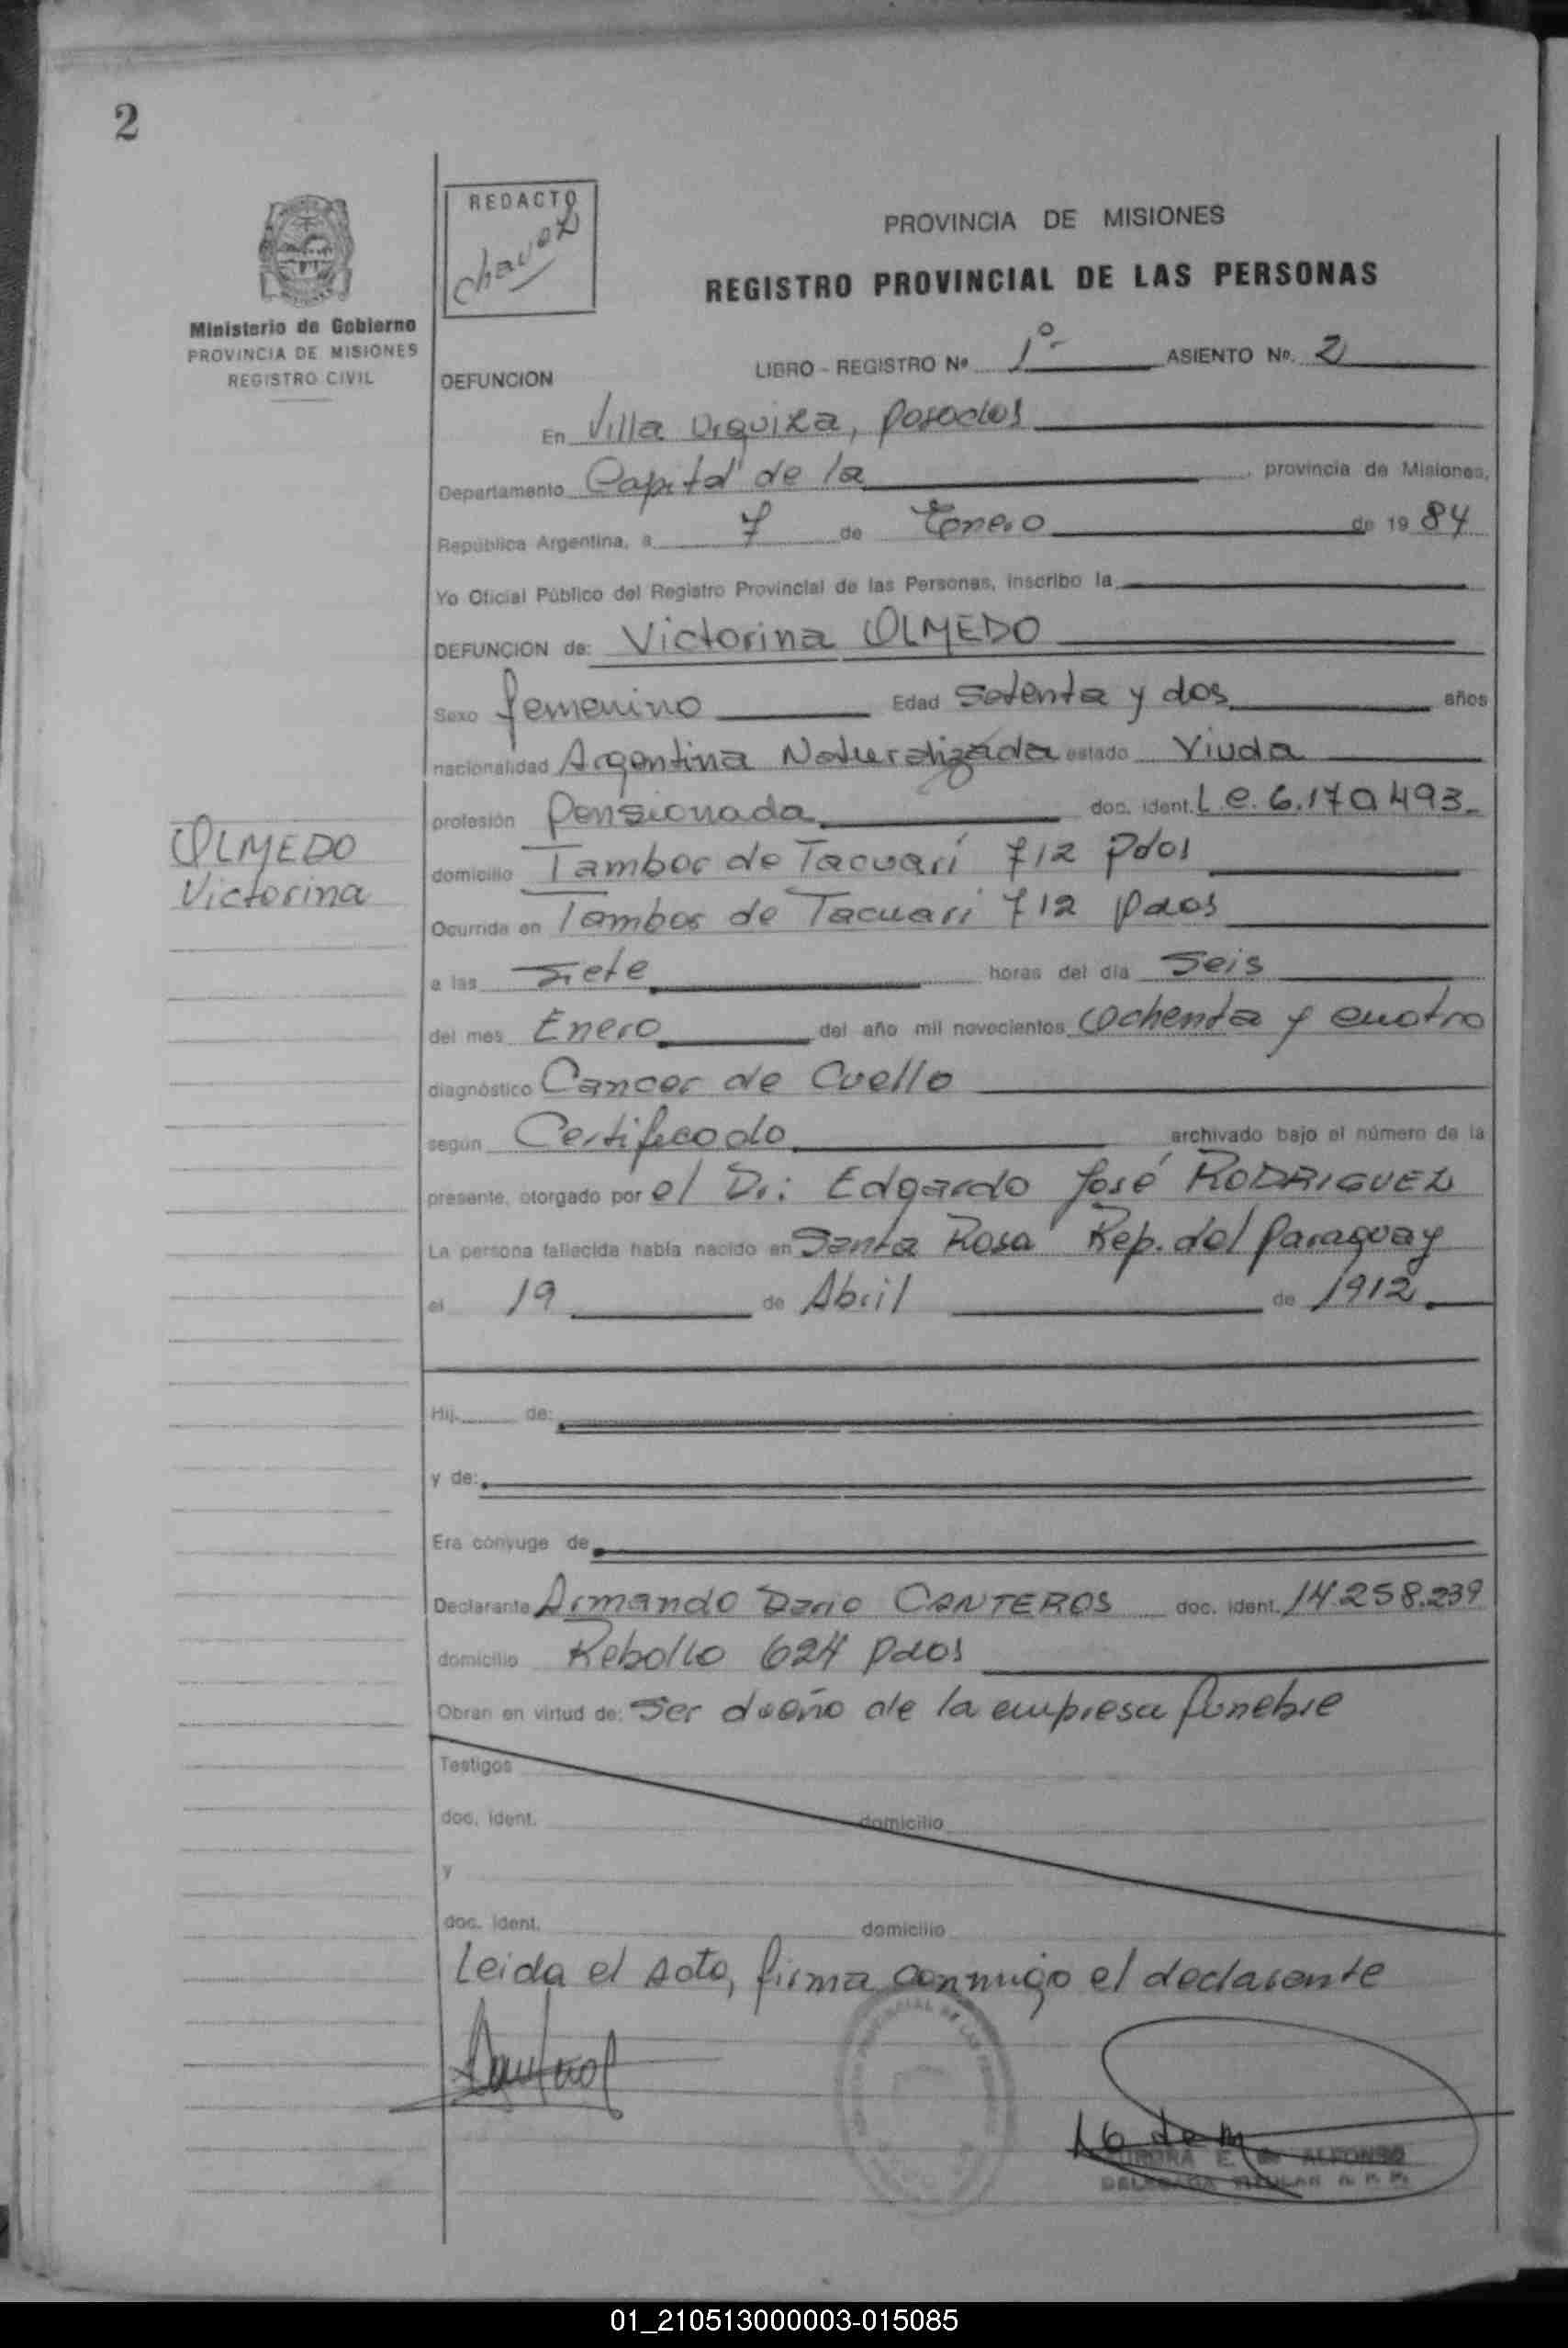 2
Ministerio de Gobierno
PROVINCIA DE MISIONES
REGISTRO CIVIL
REDACTO
Chavez
PROVINCIA DE MISIONES
REGISTRO PROVINCIAL DE LAS PERSONAS
DEFUNCION LIBRO - REGISTRO Nº 1º- ASIENTO Nº. 2
En Villa Urquiza, Posadas
Departamento Capital de la , provincia de Misiones,
República Argentina, a 7 de Enero de 19 84
Yo Oficial Público del Registro Provincial de las Personas, inscribo la
DEFUNCION de: Victorina OLMEDO
Sexo femenino Edad Setenta y dos años
nacionalidad Argentina Naturalizada estado Viuda
profesión Pensionada doc. ident. L.C. 6.170.493.-
OLMEDO
Victorina
domicilio Tambor de Tacuarí 712 Pdas
Ocurrida en Tambor de Tacuari 712 Pdas
a las Siete horas del día Seis
del mes Enero del año mil novecientos Ochenta y cuatro
diagnóstico Cancer de Cuello
según Certificado archivado bajo el número de la
presente, otorgado por el Dr: Edgardo José RODRIGUEZ
La persona fallecida había nacido en Santa Rosa Rep. del Paraguay
el 19 de Abril de 1912
Hij de:
y de:
Era cónyuge de
Declarante Armando Dario CANTEROS doc. ident. 14.258.239
domicilio Rebollo 624 Pdas
Obran en virtud de: Ser dueño de la empresa funebre
Testigos
doc. ident. domicilio
y
doc. ident. domicilio
Leida el acta, firma conmigo el declarante
E. de ALFONSO
DELEGADA TITULAR R. P. P.
01_210513000003-015085